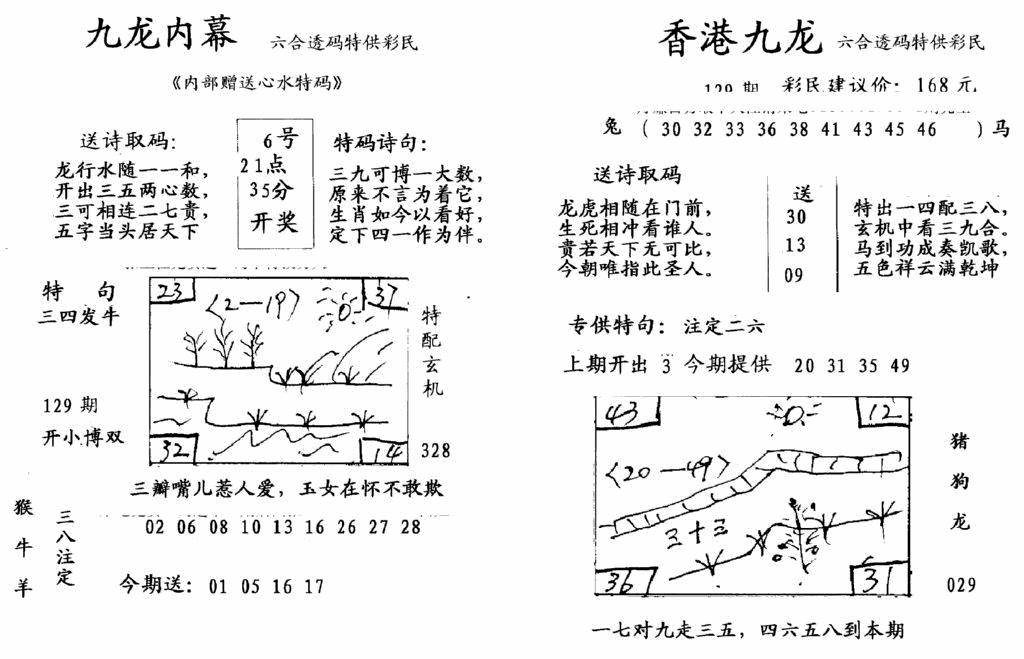 九龙内幕 六合透码特供彩民
《内部赠送心水特码》
送诗取码：
龙行水随一一和，
开出三五两心数，
三可相连二七贵，
五字当头居天下
6号
21点
35分
开奖
特码诗句：
三九可博一大数，
原来不言为着它，
生肖如今以看好，
定下四一作为伴。
特 句
三四发牛
129 期
开小博双
23
37
〈2—19〉
32
14
特配玄机
328
三瓣嘴儿惹人爱，玉女在怀不敢欺
猴牛羊
三八注定
02 06 08 10 13 16 26 27 28
今期送：01 05 16 17
香港九龙 六合透码特供彩民
129 期 彩民建议价：168 元
兔 （ 30 32 33 36 38 41 43 45 46 ）马
送诗取码
龙虎相随在门前，
生死相冲看谁人。
贵若天下无可比，
今朝唯指此圣人。
送
30
13
09
特出一四配三八，
玄机中看三九合。
马到功成奏凯歌，
五色祥云满乾坤
专供特句：注定二六
上期开出 3 今期提供 20 31 35 49
43
12
〈20—49〉
三十三
36
31
猪
狗
龙
029
一七对九走三五，四六五八到本期